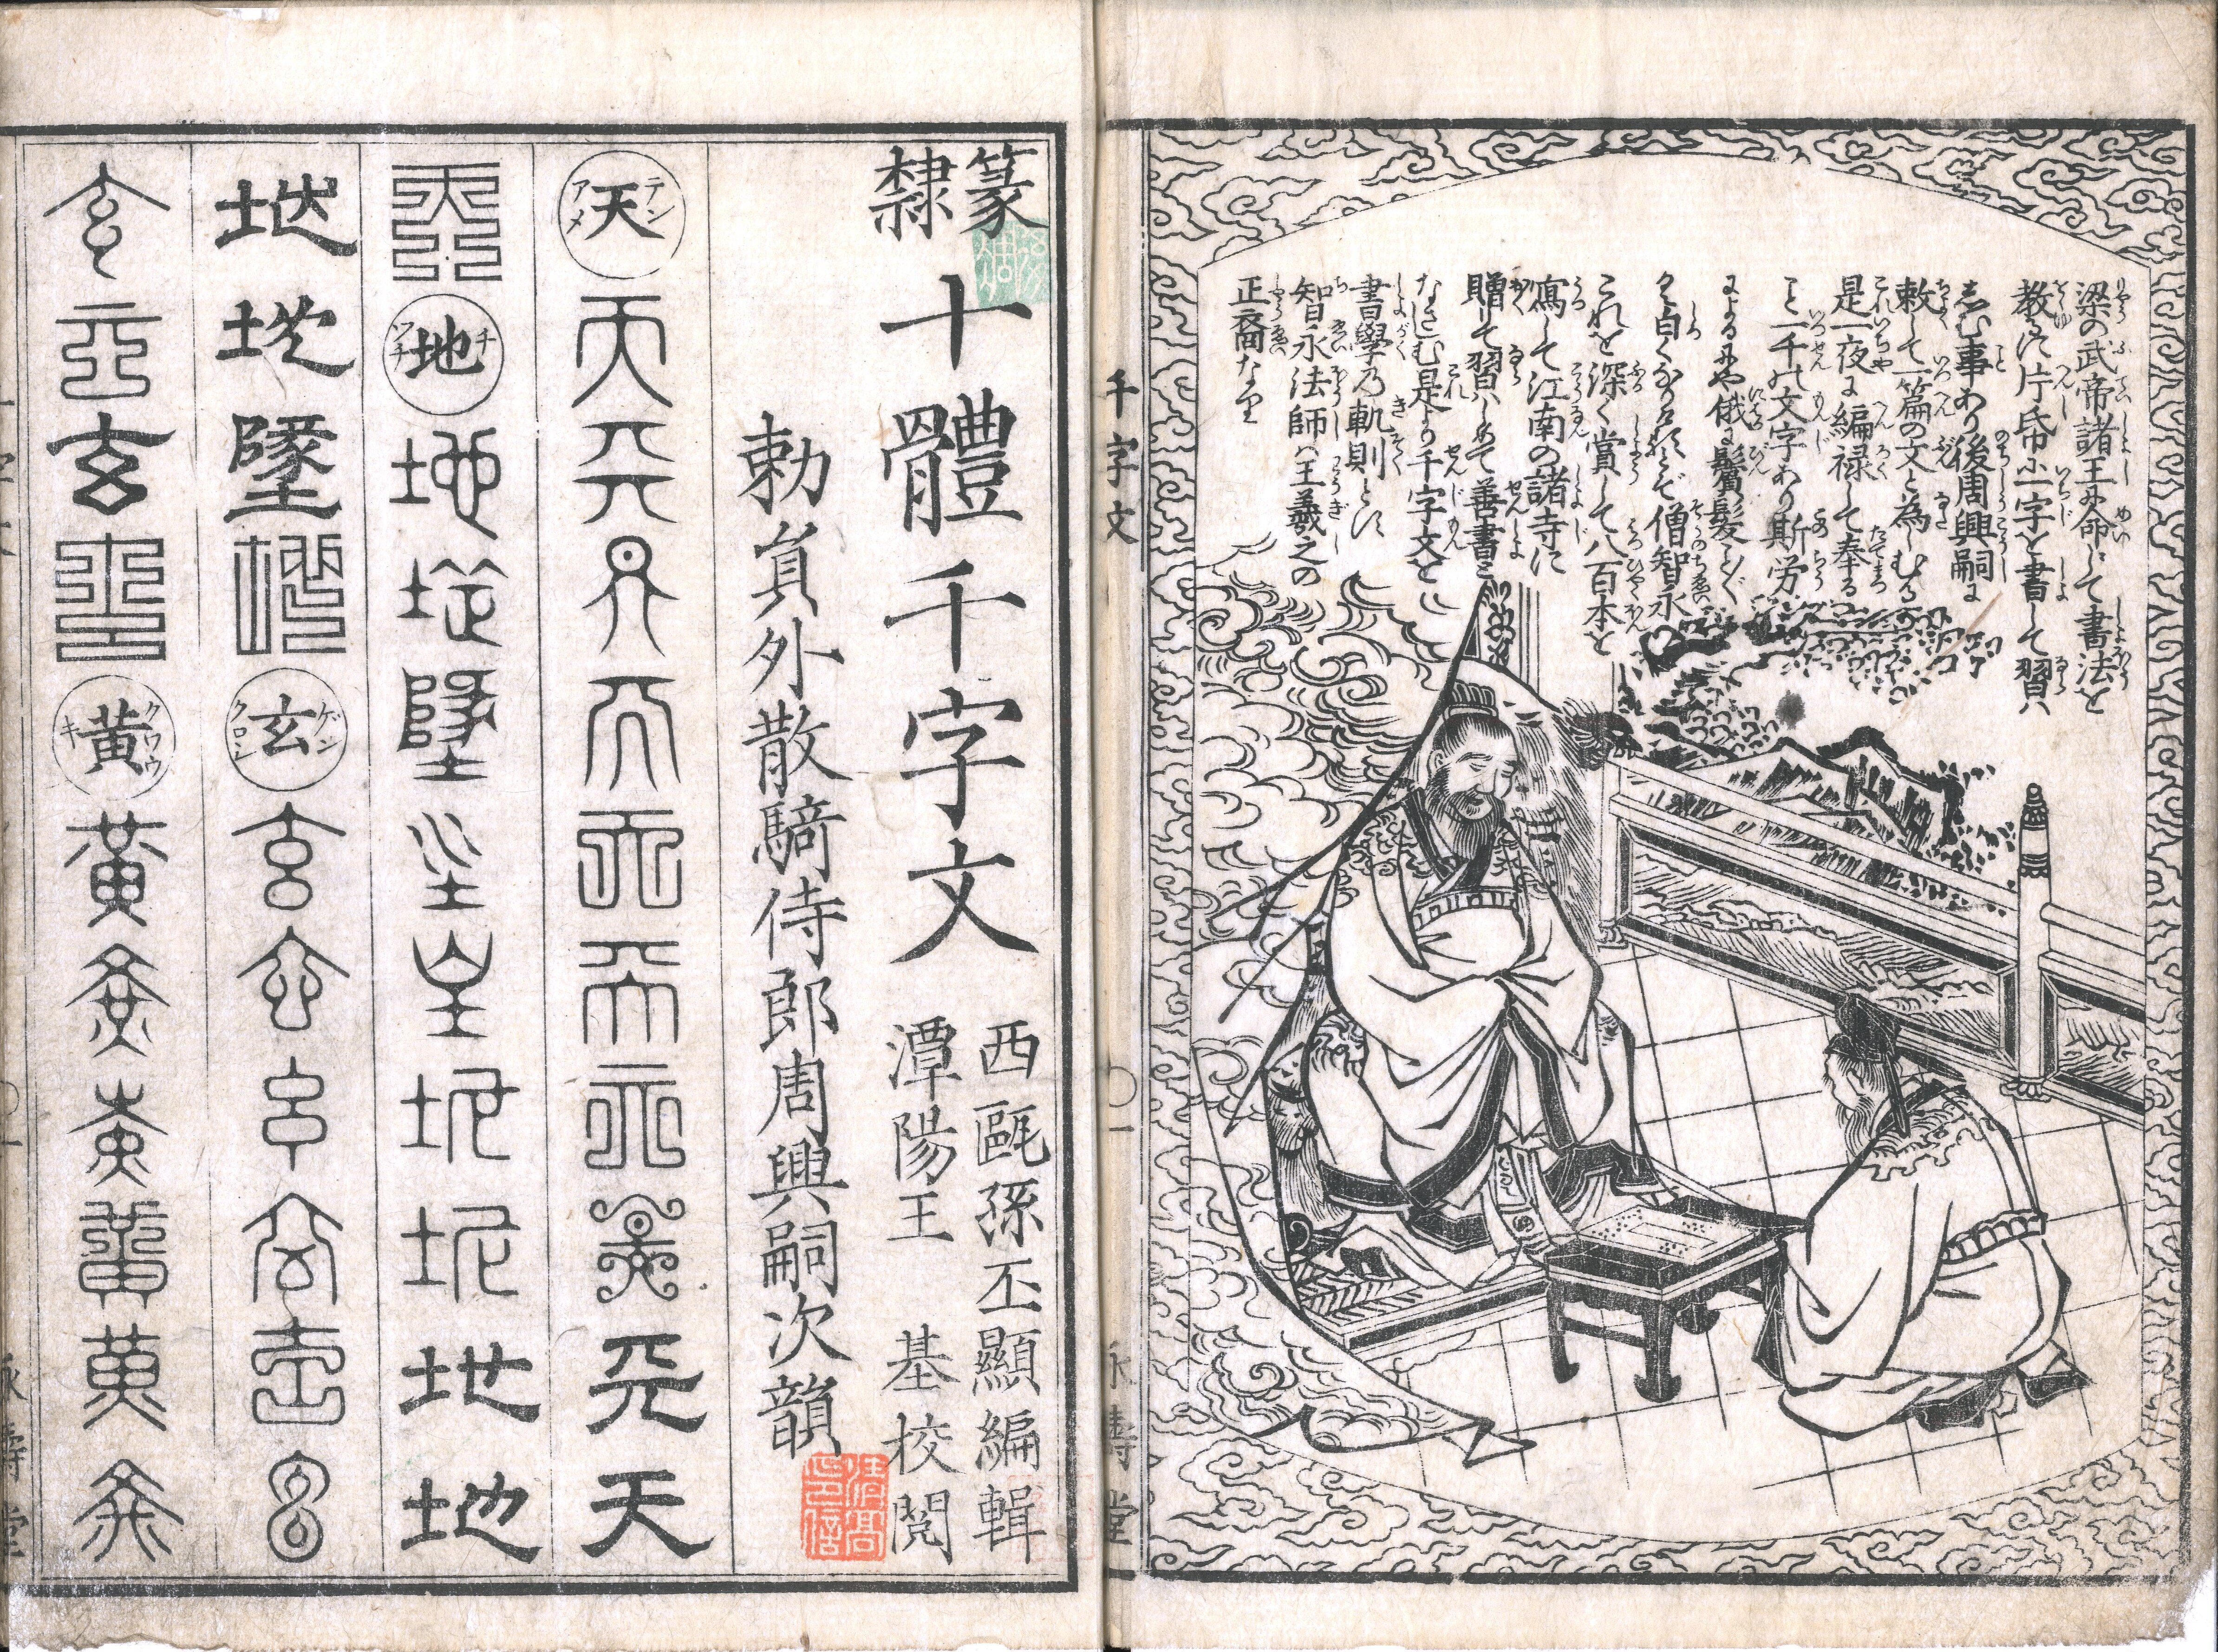 梁の武帝諸王に命じて書法を
教るに片帋に一字を書して習ハ
しむ事あり後周興嗣に
敕して一篇の文と為しむる
是一夜に編禄して奉る
こと一千の文字あり斯労
によるにや俄に鬢髪ことごと
く白くなり
僧智永
これを深く賞して八百本を
寫して江南の諸寺に
贈して習ハしめて善書と
なさしむ是より千字文を
書學乃軌則とす
智永法師ハ王羲之の
正裔なり
千字文
永壽堂
篆隸十體千字文
西甌孫丕顯編輯
潭陽王基校閲
勅員外散騎侍郎周興嗣次韻
天 テン アメ 天天天天天天天天天天
天 地 チ ツチ 地地地地地地地地地
地地地地 玄 ゲン クロシ 玄玄玄玄玄玄
玄玄玄玄 黄 クワウ キ 黄黄黄黄黄黄